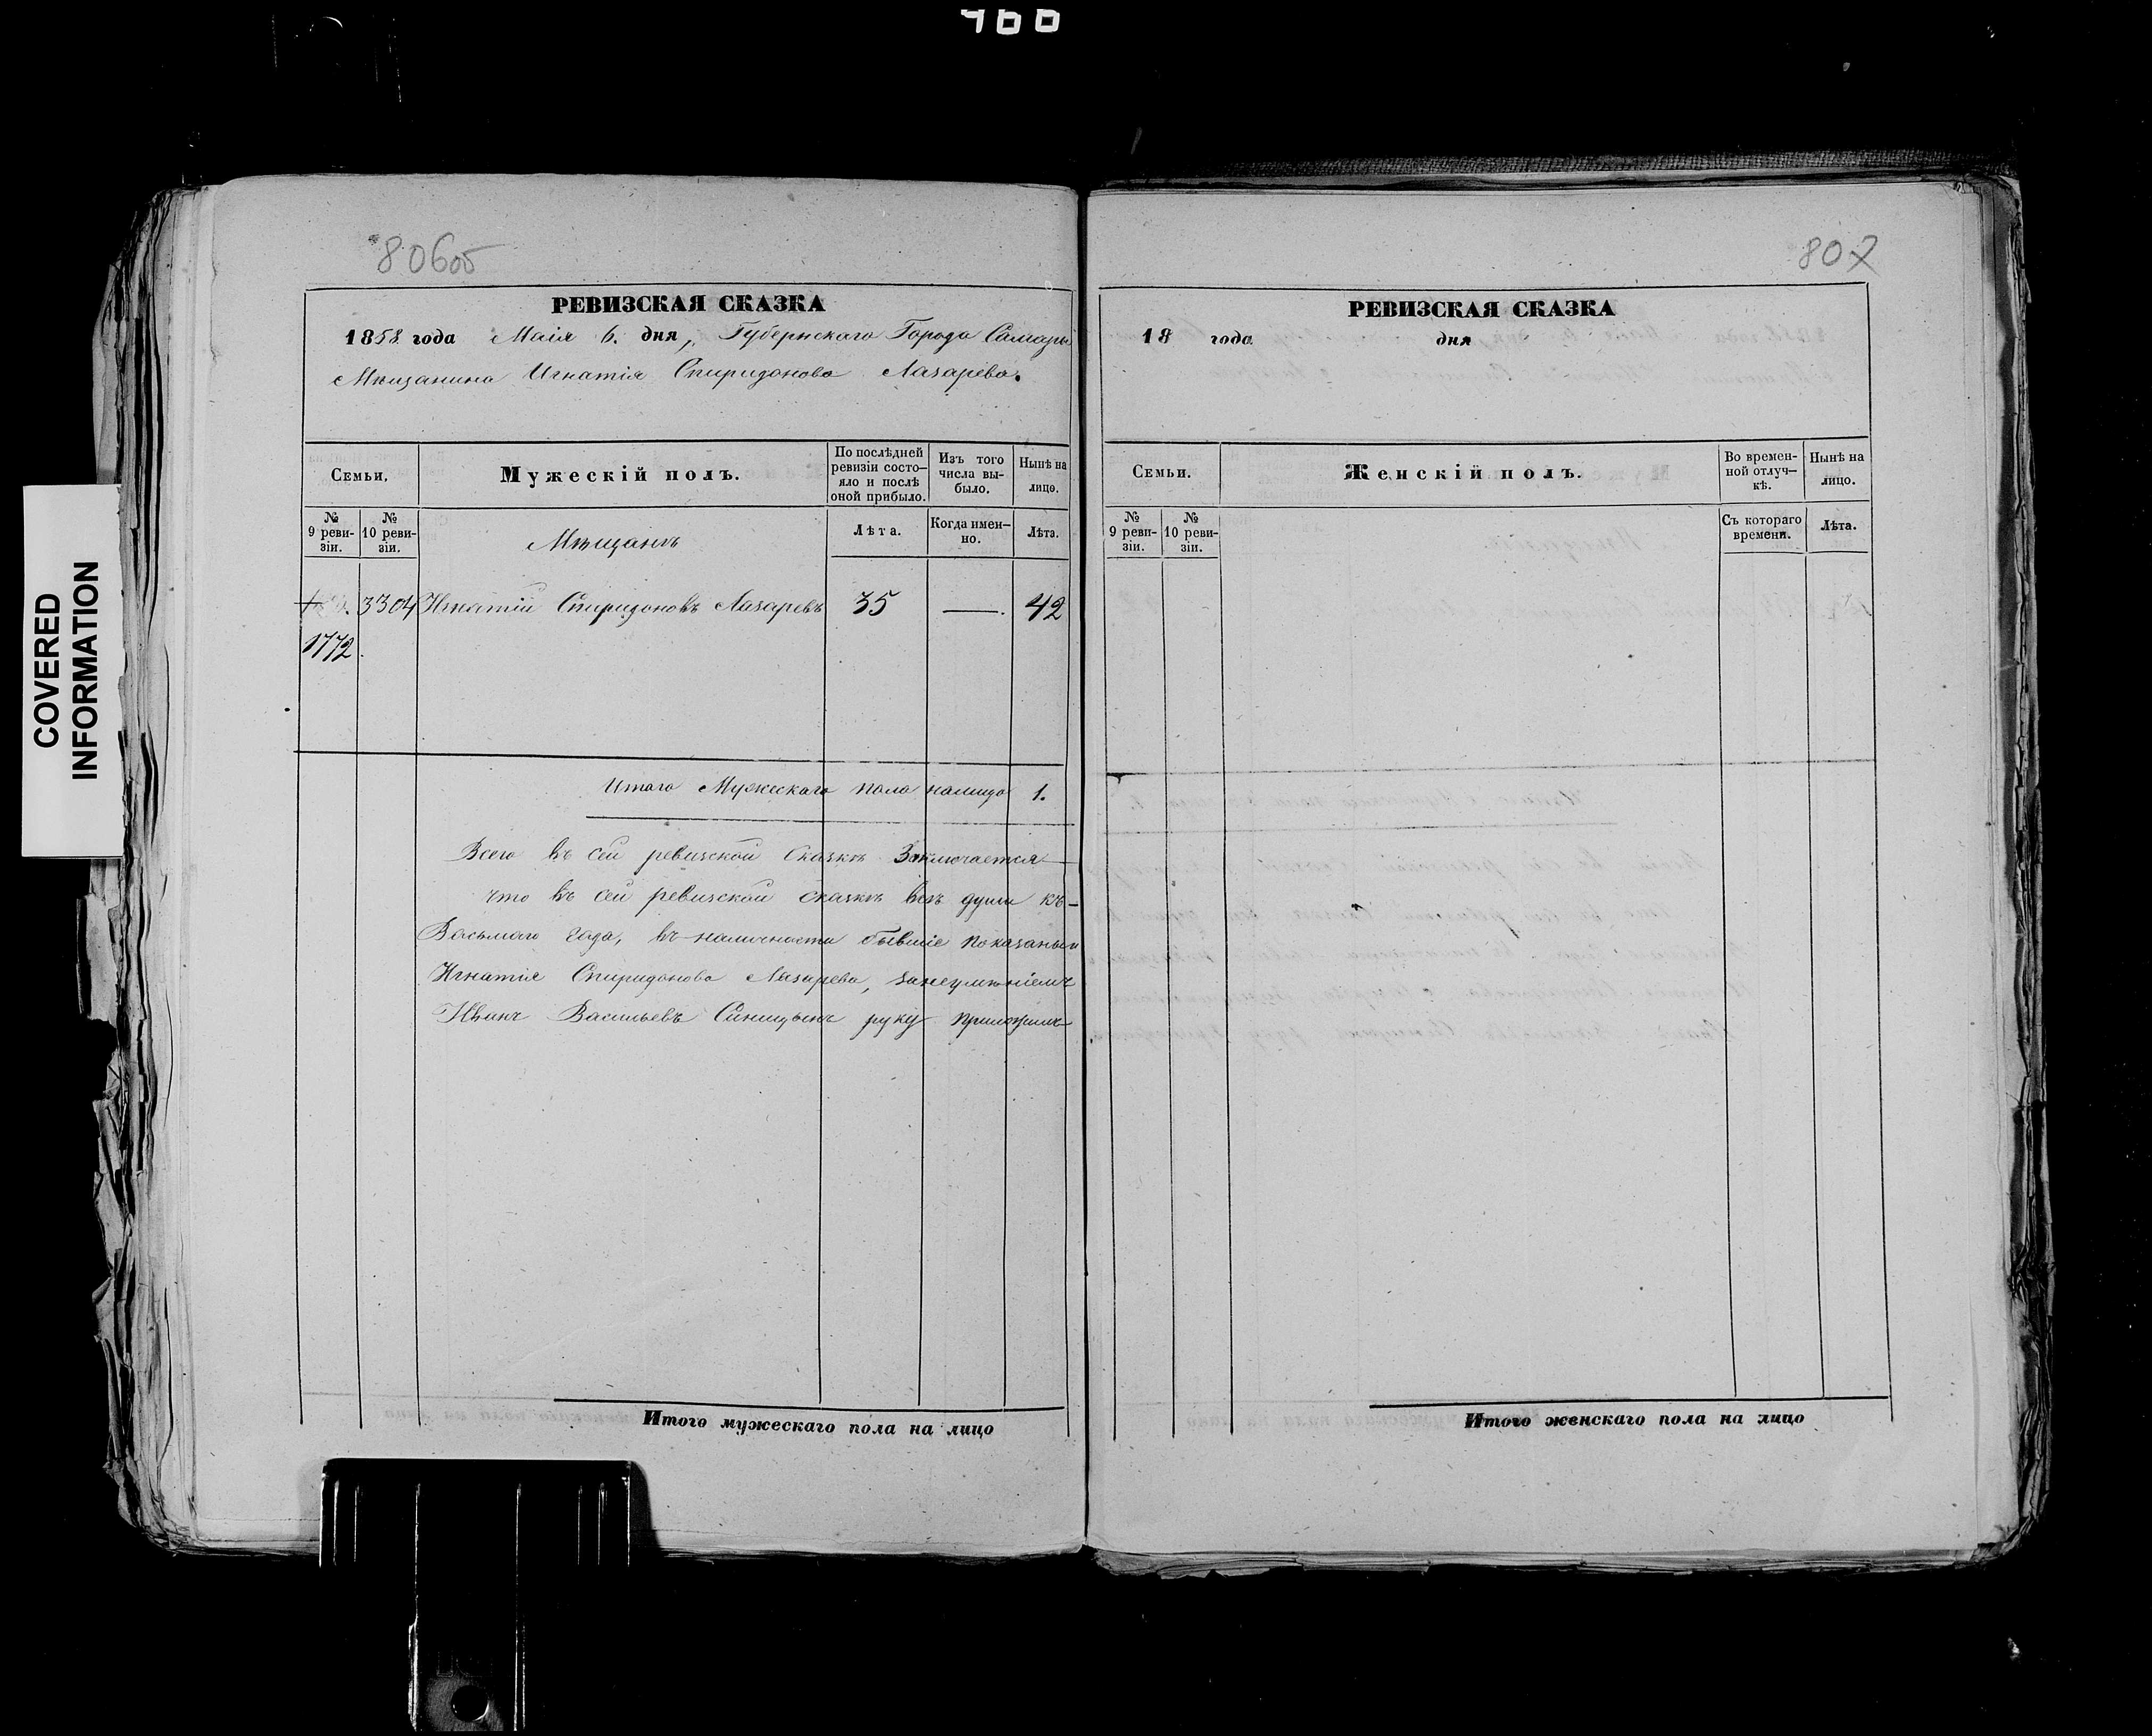 466
COVERED
INFORMATION
806об
РЕВИЗСКАЯ СКАЗКА
1858 года Маія 6. дня, Губернскаго Города Самары
Мѣщанина Игнатія Спиридонова Лазарева.
Семьи. Мужескій полъ. По послѣдней ревизіи состо— яло и послѣ оной прибыло. Изъ того числа вы— было. Нынѣ на лицо.
№ 9 реви- зіи. № 10 реви- зіи. Мѣщанъ Лѣта. Когда имен— но. Лѣта.
3304 Игнатій Спиридоновъ Лазаревъ 35 —. 42
1772.
Итого Мужескаго пола налицо 1.
Всего въ сей ревизской Сказкѣ Заключается—
что въ сей ревизской сказкѣ всѣ души къ—
Восьмаго года, въ наличности бывшіе показаны и
Игнатія Спиридонова Лазарева, занеумѣніемъ
Иванъ Васильевъ Синицынъ руку приложилъ
Итого мужескаго пола на лицо
807
РЕВИЗСКАЯ СКАЗКА
18 года дня
Семьи. Женскій полъ. Во времен— ной отлуч— кѣ. Нынѣ на лицо.
№ 9 реви- зіи. № 10 реви- зіи. Съ котораго времени. Лѣта.
Итого женскаго пола на лицо